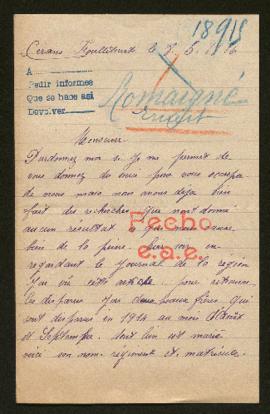 18915
Cerans Foulletourte le 7. 5. 1916
A
Pedir informes
Que se hace así
Devolver
Romaigné
Monsieur
Pardonnez moi si je me permet de
vous donner du ennui pour vous occupe
de nous mais nous avons deja bien
fait des recherches que nont donné
aucun resultat
bien de la peine hier soir en
regardant le journal de la region
J'ai vu cette article pour retrouver
les disparus J'ai deux beaux frères qui
sont disparus en 1914 au mois d'Août
et Septembre doit l'un est marié
voici son nom regiment et matricule.
Fecho
e.a.e.